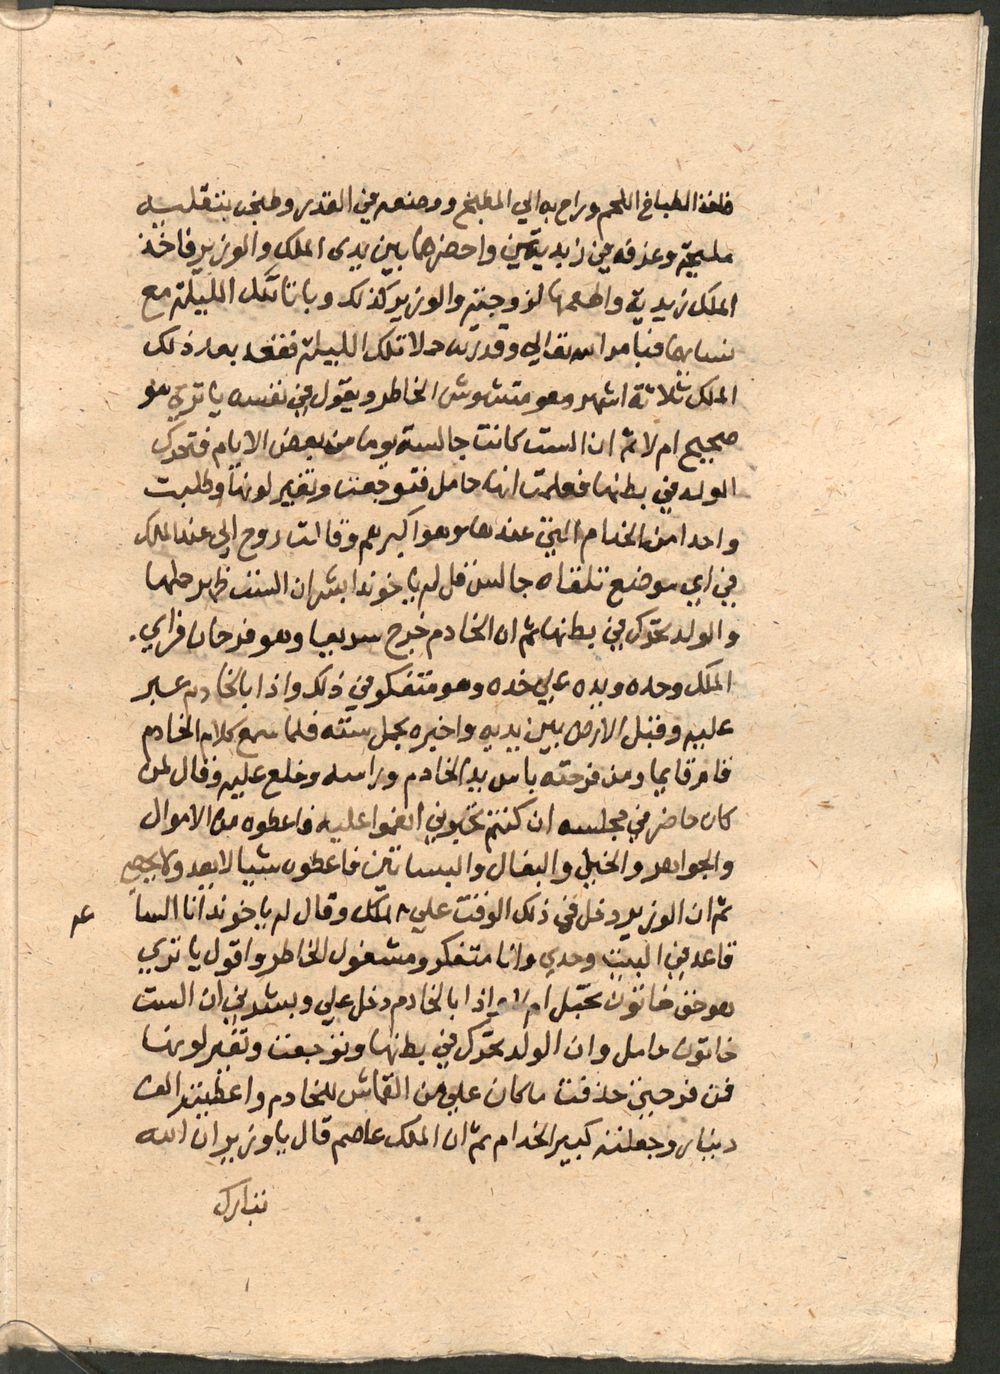 فاخذ الطباخ اللحم وراح به الي المطبخ ووضعه في القدر وطبخه بتقليه
مليحة وغرفه في زبديتين واحضرهما بين يدى الملك والوزير فاخذ
الملك زبدية واطعمها لزوجته والوزير كذلك وباتا تلك الليلة مع
نسايهما فبامر الله تعالي وقدرته حملا تلك الليلة فقعد بعد ذلك
الملك ثلاثة اشهر وهو متشوش الخاطر ويقول في نفسه يا تري هو
صحيح ام لا ثم ان الست كانت جالسة يوما من بعض الايام فتحرك
الولد في بطنها فعلمت انها حامل فتوجعت وتغير لونها وطلبت
واحدا من الخدام الذي عندها وهو اكبرهم وقالت روح الي عند الملك
في اي موضع تلقاه جالس قل له يا خوند ابشر ان الست ظهر حملها
والولد تحرك في بطنها ثم ان الخادم خرج سريعا وهو فرحان فراي
الملك وحده ويده علي خده وهو متفكر في ذلك واذا بالخادم عبر
عليه وقبل الارض بين يديه واخبره بحمل سته فلما سمع كلام الخادم
قام قايما ومن فرحته باس يد الخادم وراسه وخلع عليه وقال لمن
كان حاضر في مجلسه ان كنتم تحبوني انعموا عليه فاعطوه من الاموال
والجواهر والخيل والبغال والبساتين فاعطوه شيا لا يعد ولا يحصي
ثم ان الوزير دخل في ذلك الوقت علي الملك وقال له يا خوند انا الساعه
قاعد في البيت وحدي وانا متفكر ومشغول الخاطر واقول يا تري
هو حق خاتون تحبل ام لا واذا بالخادم دخل علي وبشرني ان الست
خاتون حامل وان الولد تحرك في بطنها وتوجعت وتغير لونها
فمن فرحتي خلعت ما كان علي من القماش للخادم واعطيته الف
دينار وجعلته كبير الخدام ثم ان الملك عاصم قال يا وزير ان الله
تبارك